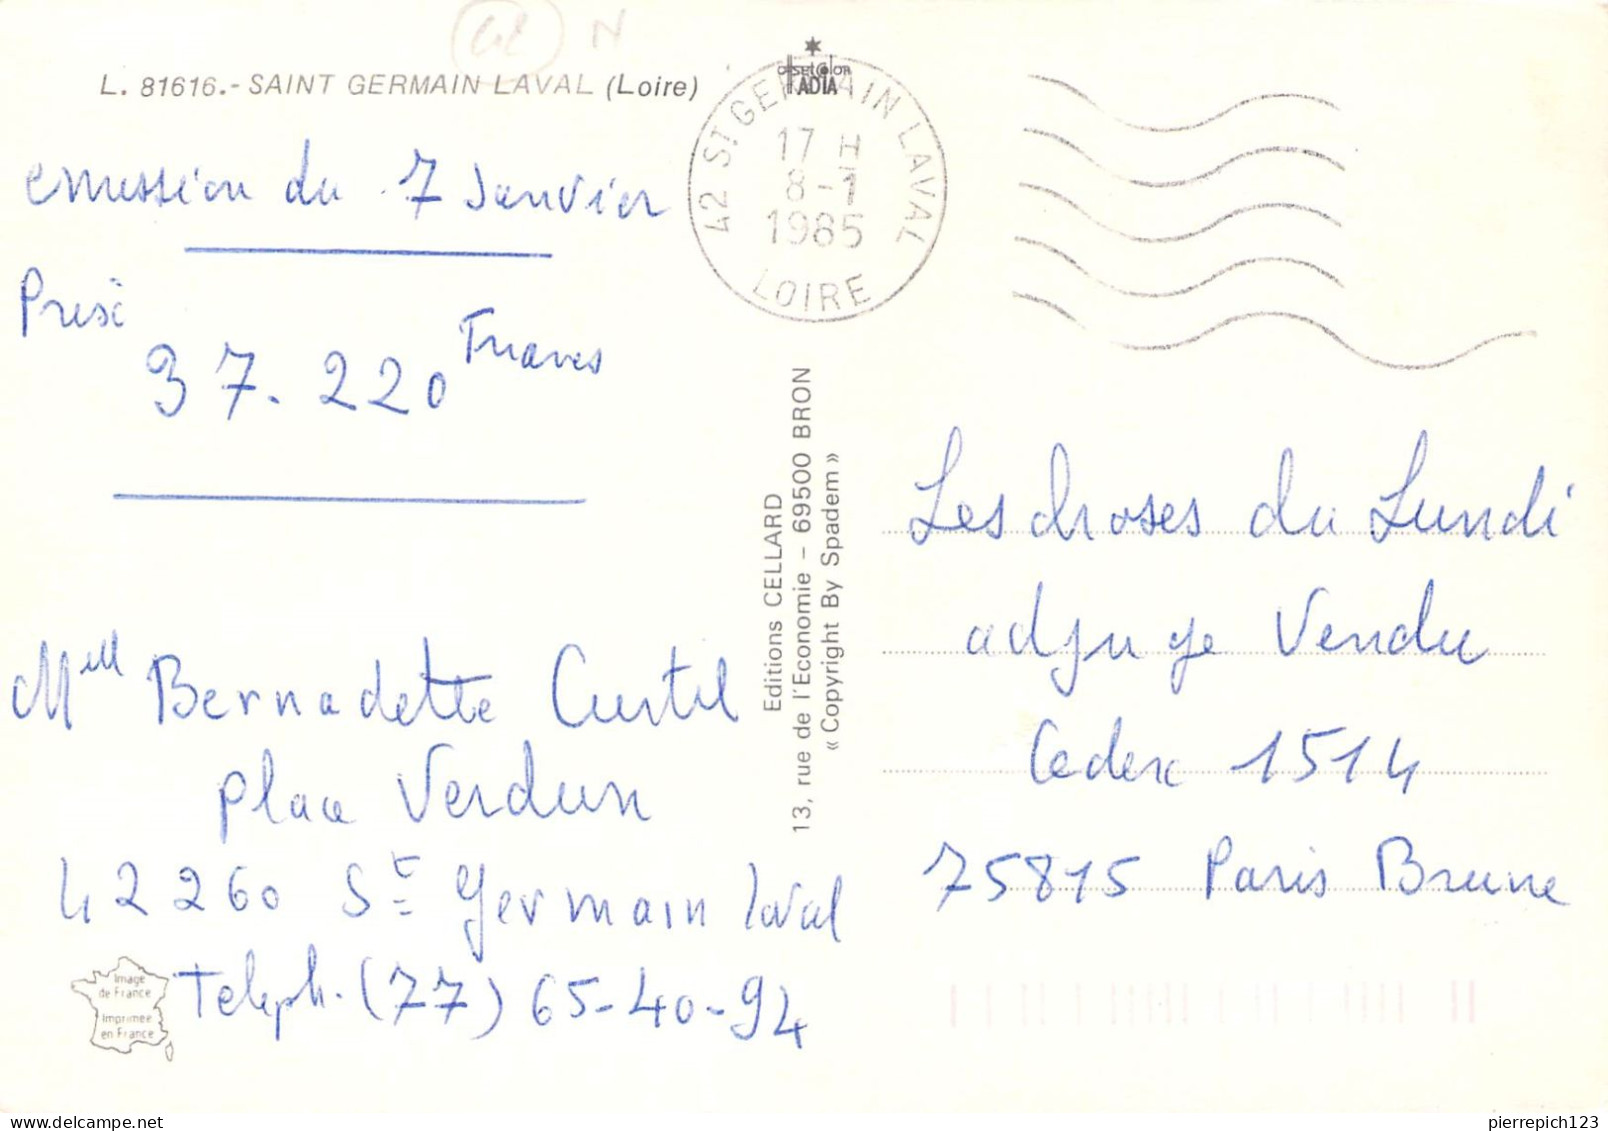 L. 81616.- SAINT GERMAIN LAVAL (Loire)
42 N
offsetcolor
IADIA
42 ST GERMAIN LAVAL
17 H
8-1
1985
LOIRE
emission du 7 Janvier
Prix
37.220 Francs
Mell Bernadette Curtil
place Verdun
42260 St Germain Laval
Teleph. (77) 65-40-94
Image
de France
Imprimée
en France
Editions CELLARD
13, rue de l'Economie - 69500 BRON
« Copyright By Spadem »
Les choses du Lundi
adjuge Vendu
Cedex 1514
75815 Paris Brune
pierrepich123